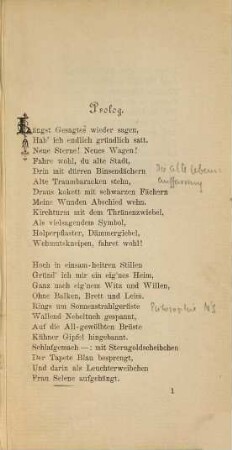 Prolog.
Längst Gesagtes wieder sagen,
Hab' ich endlich gründlich satt.
Neue Sterne! Neues Wagen!
Fahre wohl, du alte Stadt,
Drin mit dürren Binsendächern
Alte Traumbaracken stehn,
Draus kokett mit schwarzen Fächern
Meine Wunden Abschied wehn.
Kirchturm mit dem Thränenzwiebel,
Als vielsagendem Symbol,
Holperpflaster, Dämmergiebel,
Wehmutskneipen, fahret wohl!
Hoch in einsam-heitren Stillen
Gründ' ich mir ein eig'nes Heim,
Ganz nach eig'nem Witz und Willen,
Ohne Balken, Brett und Leim.
Rings um Sonnenstrahlgerüste
Wallend Nebeltuch gespannt,
Auf die All-gewölbten Brüste
Kühner Gipfel hingebannt.
Schlafgemach —: mit Sterngoldscheibchen
Der Tapete Blau besprengt,
Und darin als Leuchterweibchen
Frau Selene aufgehängt.
1